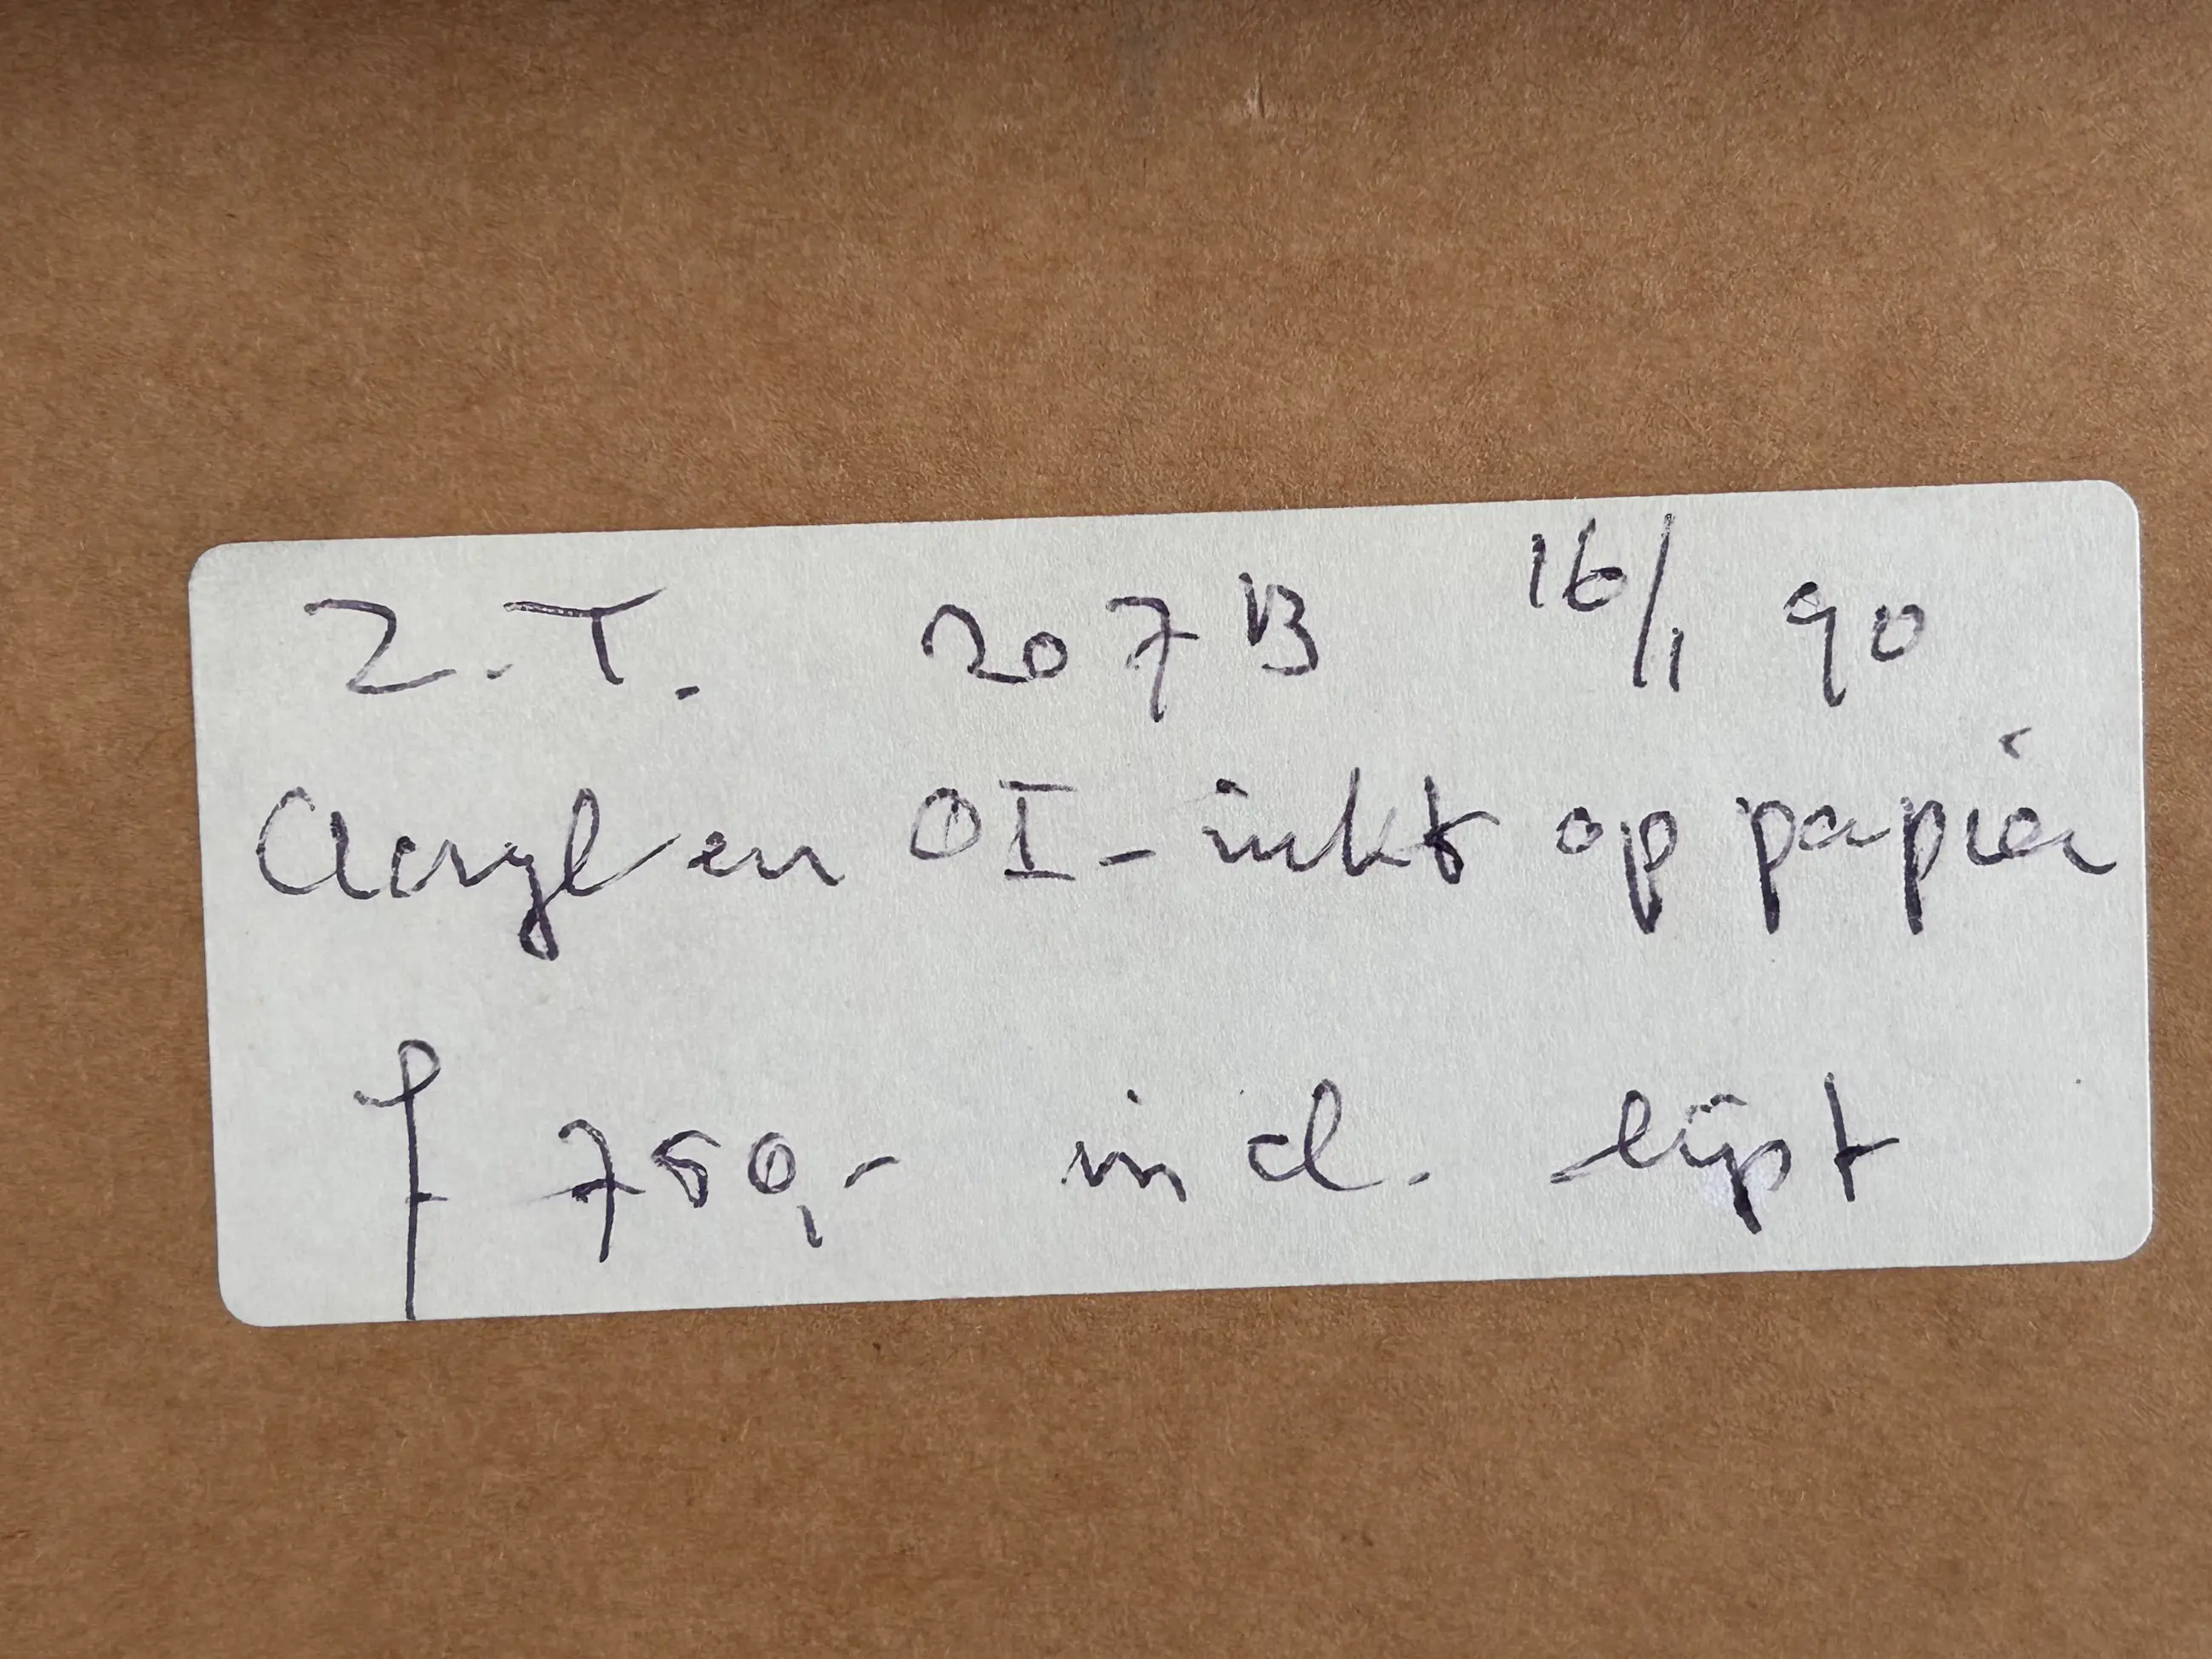 Z.T. 207B 16/1 90
Acryl en OI-inkt op papier
f 750,- incl. lijst